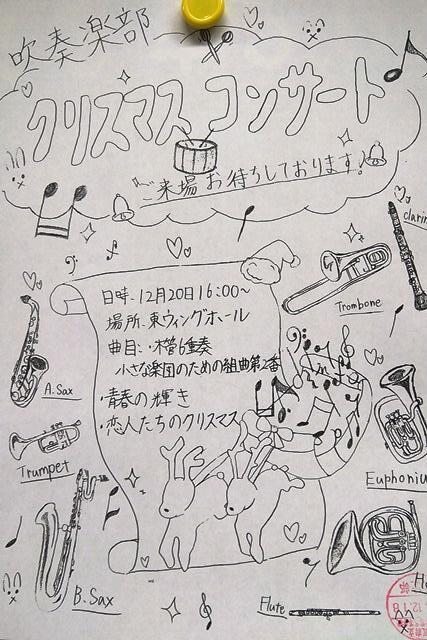 吹奏楽部
クリスマスコンサート
ご来場お待ちしております!
日時・12月20日16:00～
場所・東ウィングホール
曲目・木管6重奏
小さな楽団のための組曲第2番
・青春の輝き
・恋人たちのクリスマス
clarin
Trombone
A.Sax
Trumpet
Euphoniu
B.Sax
Flute
12.18